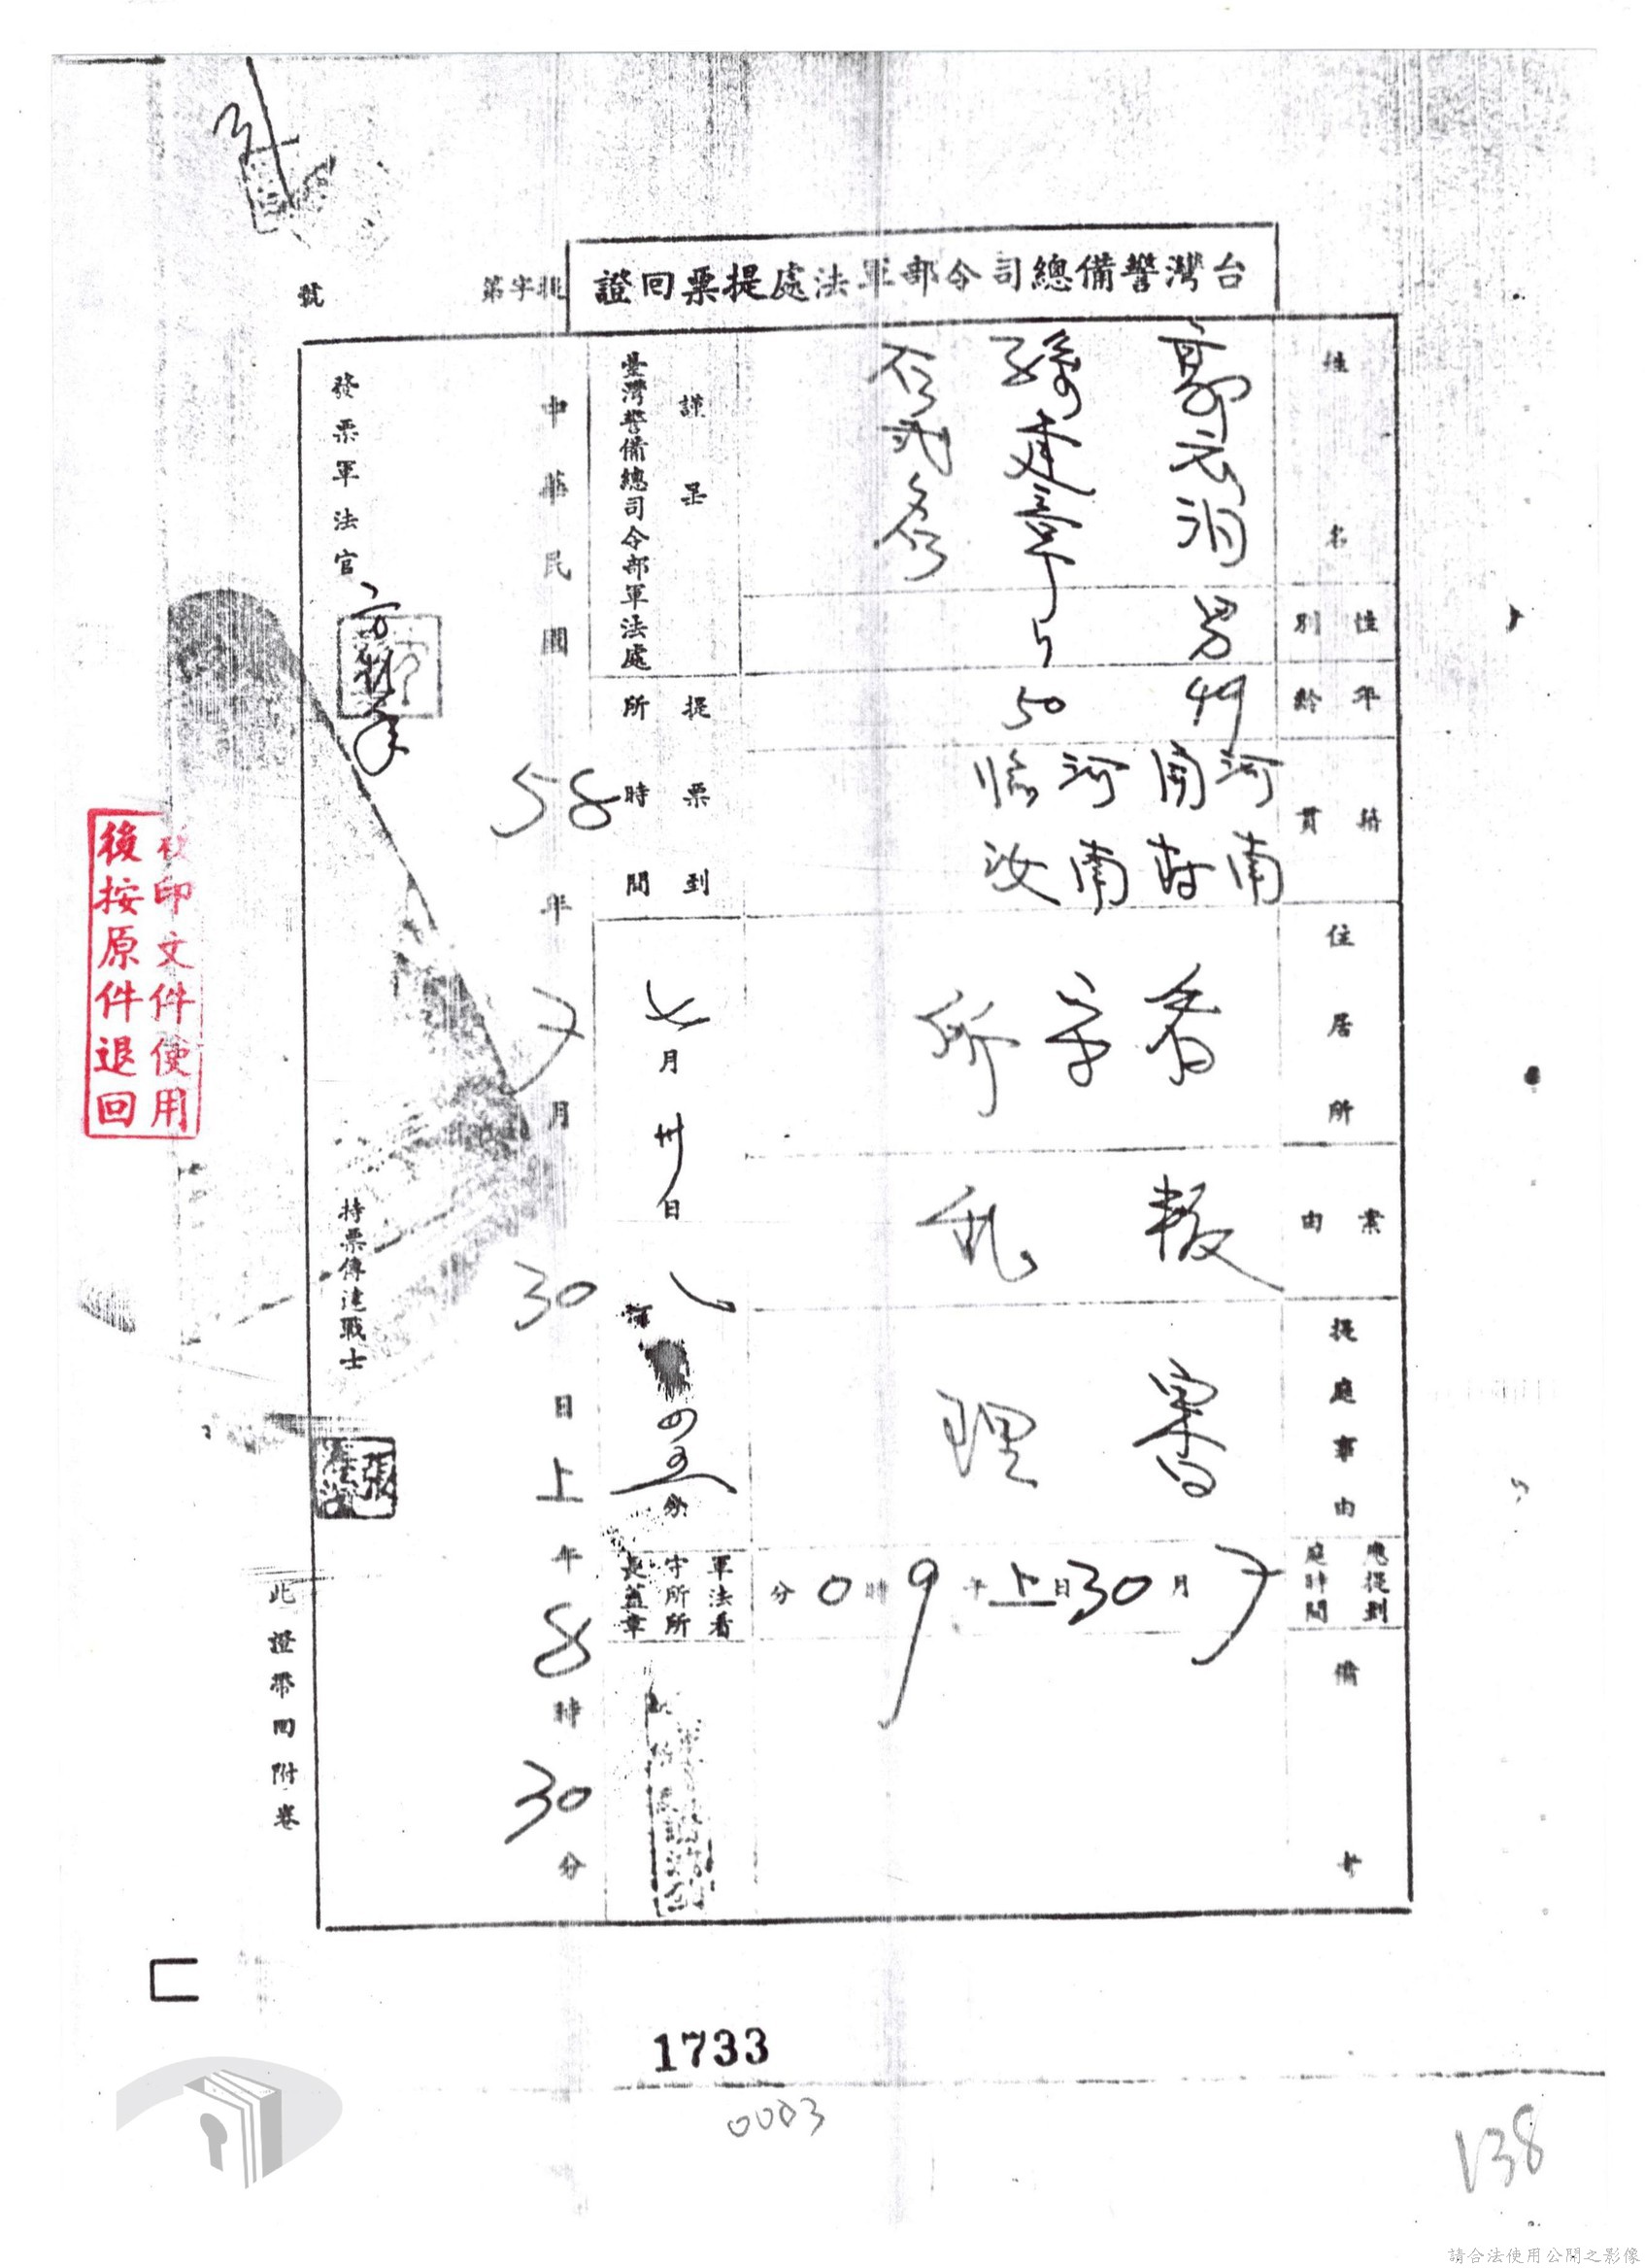 台灣警備總司令部軍法處提票回證
提字第
號
姓名
性別
年齡
籍貫
住居所
案由
提庭事由
應提到庭時間
備
郭
男
49
河南
孫建章
50
河南
臨汝
看守所
叛亂
審理
7月30日上午9時0分
謹呈
臺灣警備總司令部軍法處
提票到所時間
七月卅日
分
軍法看守所所長蓋章
中華民國58年7月30日上午8時30分
發票軍法官
持票傳達戰士
張
此證帶回附卷
印文件使用
後按原件退回
1733
0003
138
請合法使用公開之影像